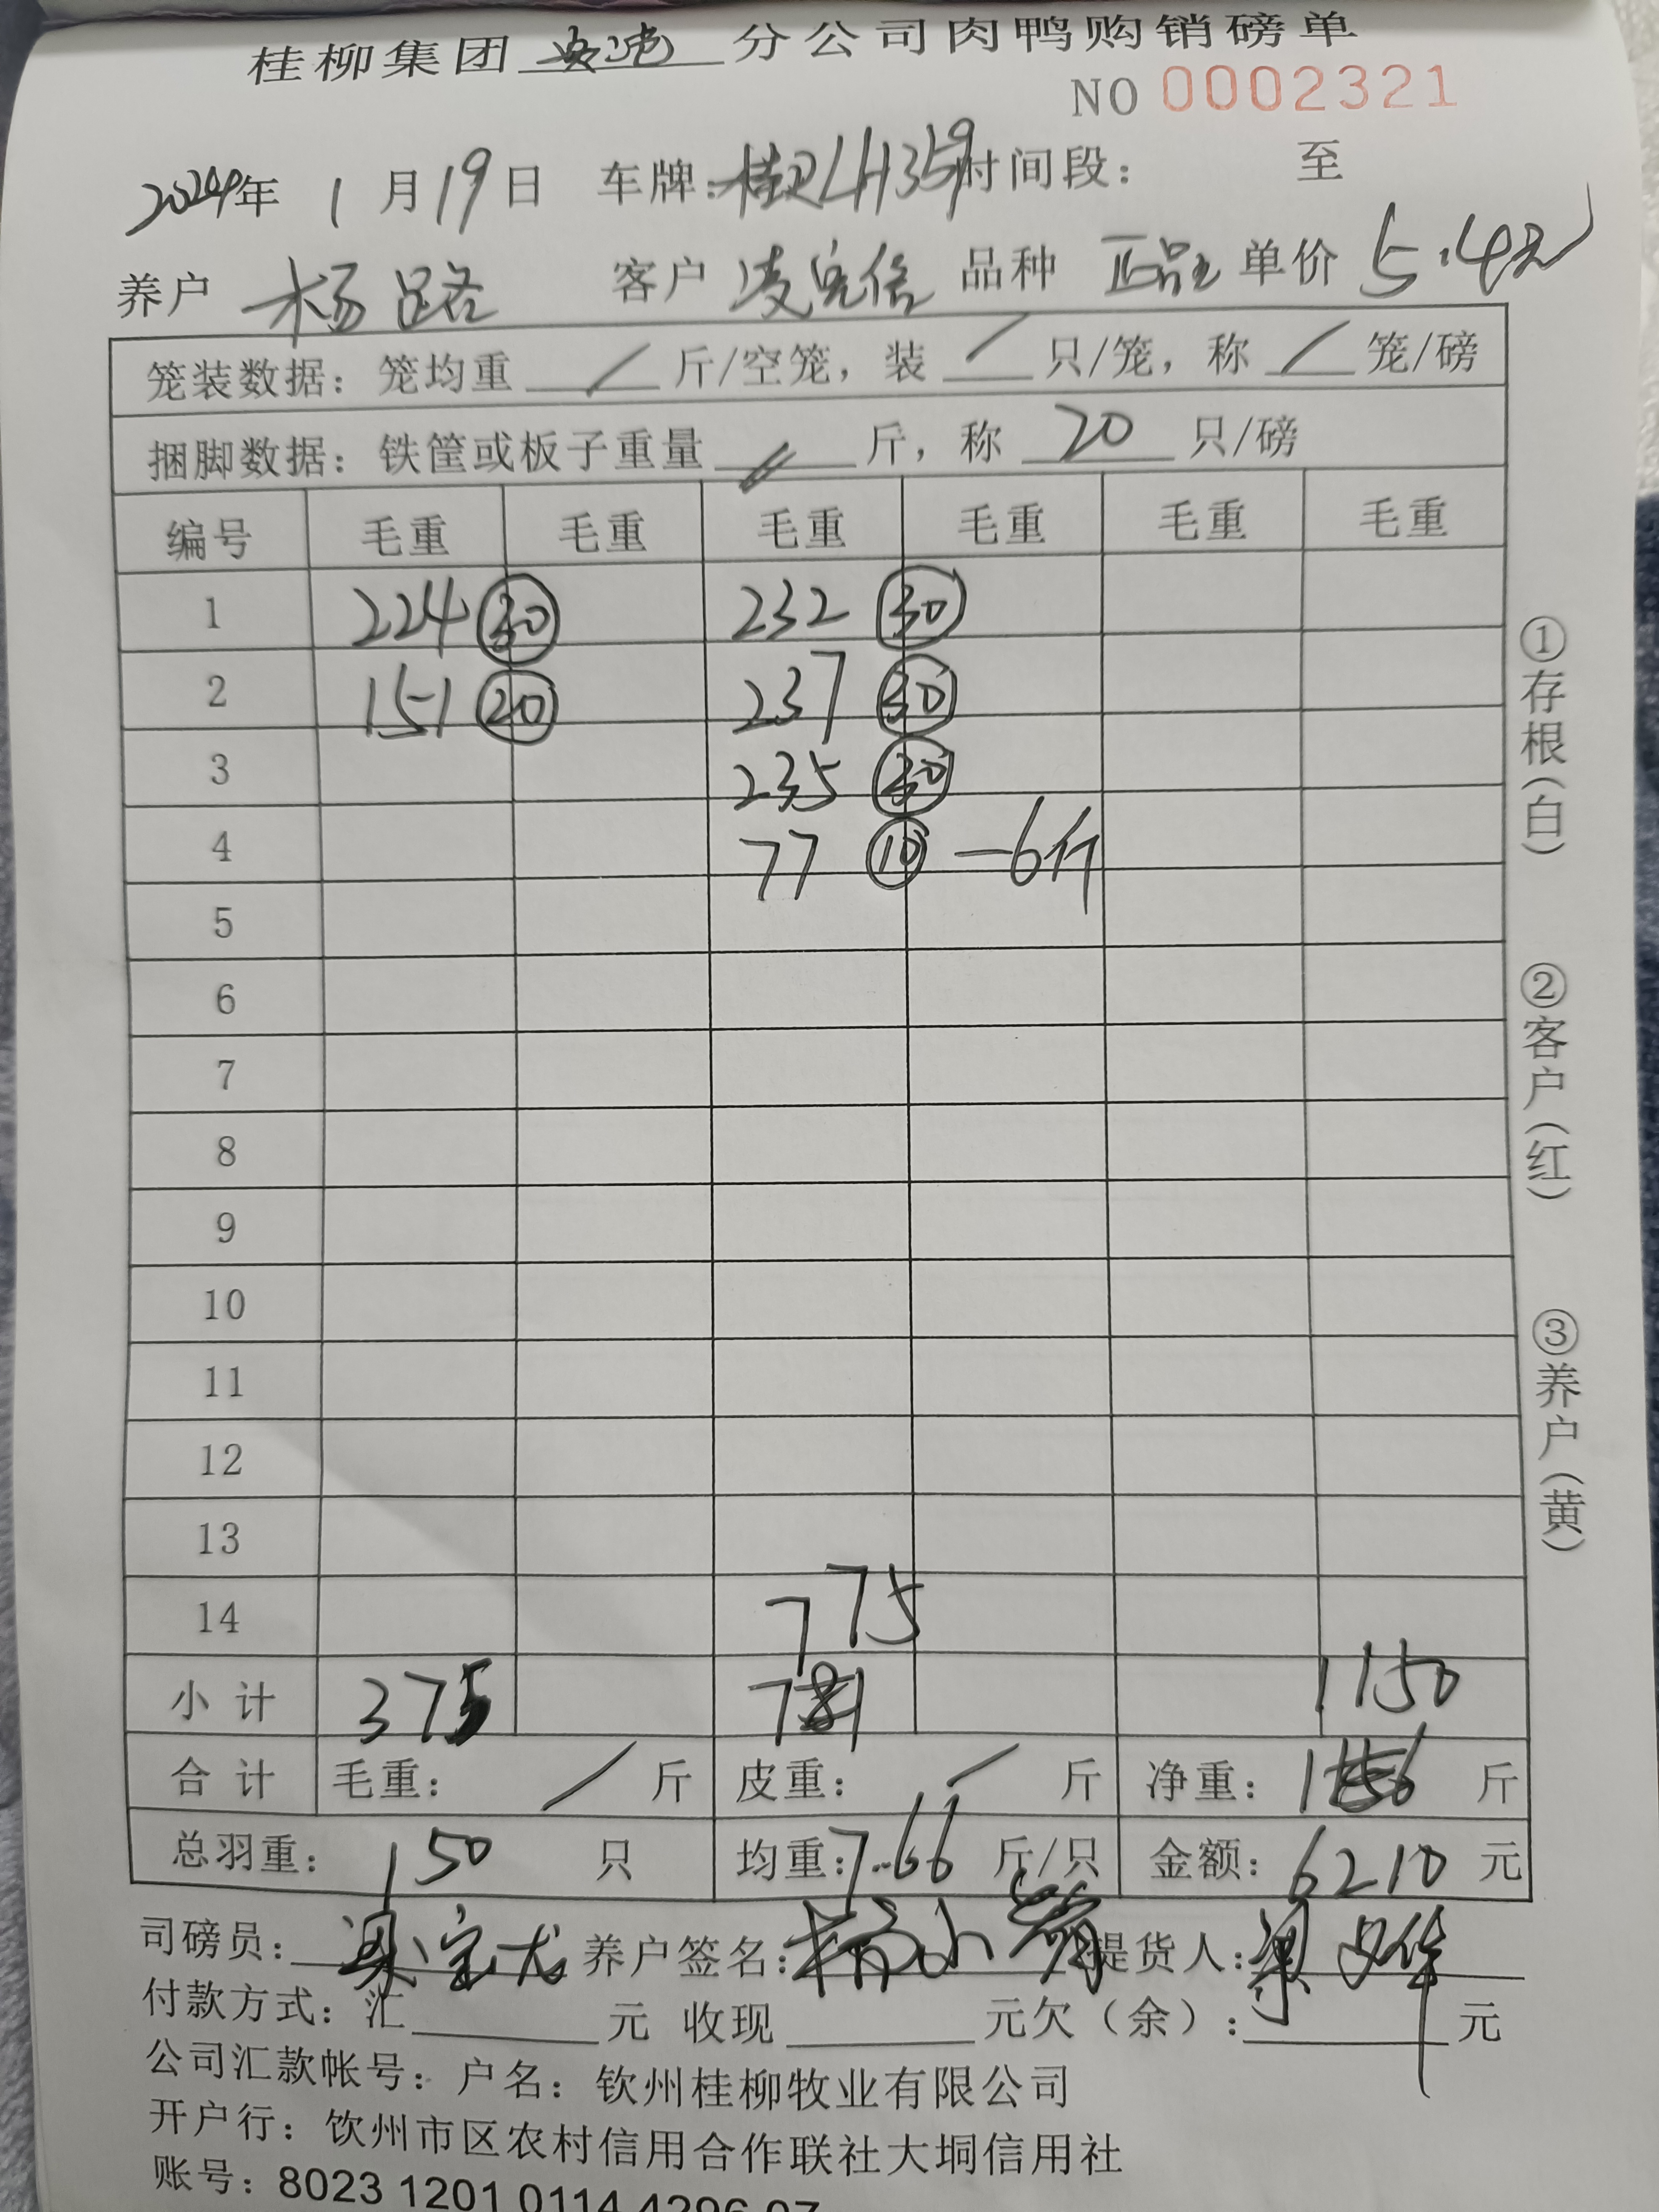 桂柳集团 分公司肉鸭购销磅单
NO 0002321
2024年 1月19日 车牌：桂 LH359 时间段： 至
养户 杨路 客户 凌 信 品种 正品 单价 5.4元
笼装数据：笼均重 / 斤/空笼，装 / 只/笼，称 / 笼/磅
捆脚数据：铁筐或板子重量 斤，称 20 只/磅
编号 毛重 毛重 毛重 毛重 毛重 毛重
1 224 30 232 30
2 151 20 237 30
3 235 30
4 77 10 -6斤
5
6
7
8
9
10
11
12
13
14 775
小计 375 781 1150
合计 毛重： / 斤 皮重： / 斤 净重： 1156 斤
总羽重： 150 只 均重：7.66 斤/只 金额：6210 元
司磅员： 梁宝龙 养户签名：杨小 提货人：梁 华
付款方式：汇 元 收现 元欠（余）： 元
公司汇款帐号：户名：钦州桂柳牧业有限公司
开户行：饮州市区农村信用合作联社大垌信用社
账号：8023 1201 0114 4296 07
①存根（白）
②客户（红）
③养户（黄）